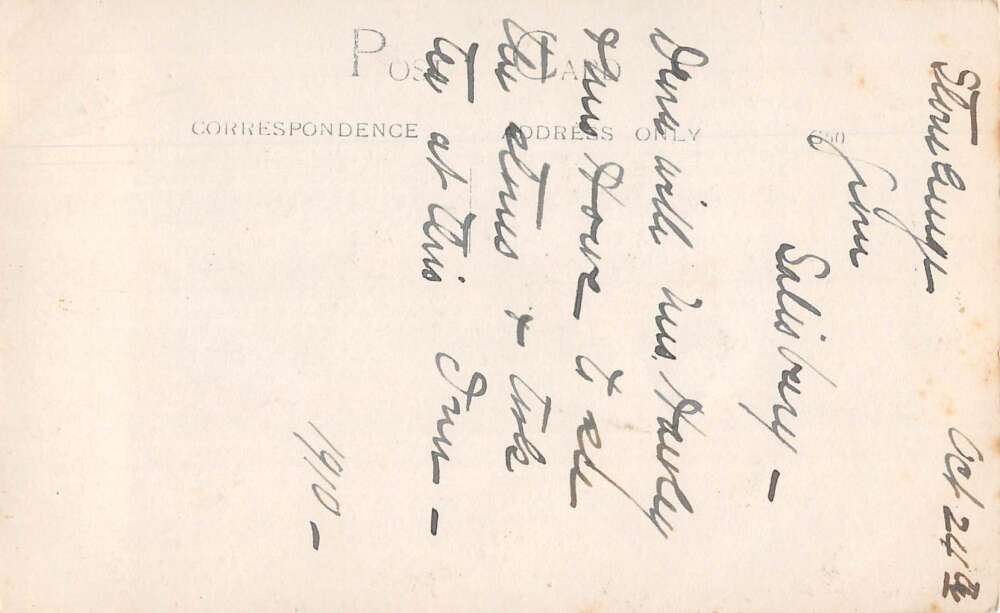 POST CARD
CORRESPONDENCE
ADDRESS ONLY
Stonehenge Oct 24th
from
Salisbury -
Drove with Mrs. Hawley
& to see
the stones & took
tea at this Inn -
1910 -